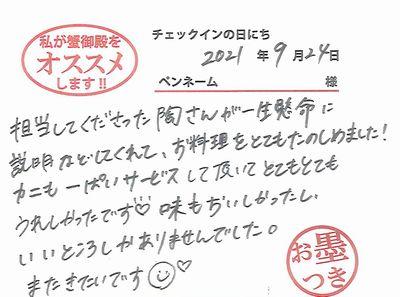 私が蟹御殿を
オススメ
します!!
チェックインの日にち
2021 年 9 月 24 日
ペンネーム 様
担当してくださった陶さんが一生懸命に
説明などしてくれて、お料理をとてもたのしめました!
カニも一ぱいサービスして頂いてとてもとても
うれしかったです♡ 味もおいしかったし、
いいところしかありませんでした。
またきたいです☺♡
お墨
つき